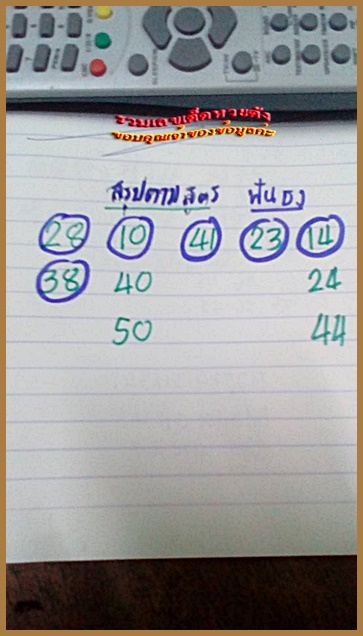 รวมเลขเด็ดหวยดัง
ขอบคุณเจ้าของข้อมูลค่ะ
สรุปตามสูตร ฟันธง
28 10 41 23 14
38 40 24
50 44